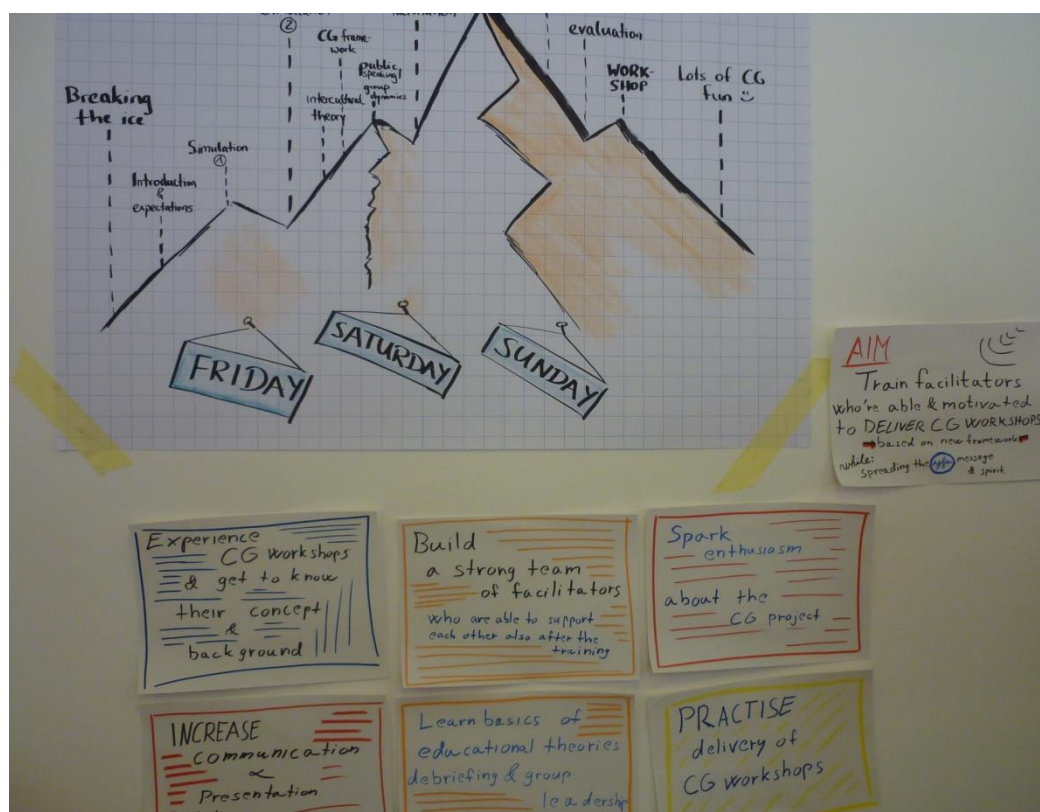 Breaking
the ice
Introduction
&
expectations
Simulation
①
②
intercultural
theory
CG frame-
work
public
speaking/
group
dynamics
evaluation
WORK-
SHOP
Lots of CG
fun ☺
FRIDAY
SATURDAY
SUNDAY
AIM
Train facilitators
who're able & motivated
to DELIVER CG WORKSHOPS
based on new framework
while:
spreading the message
& spirit.
Experience
CG workshops
& get to know
their concept
&
background
Build
a strong team
of facilitators
who are able to support
each other also after the
training
Spark
enthusiasm
about the
CG project
INCREASE
communication
Presentation
Learn basics of
educational theories
debriefing & group
leadership
PRACTISE
delivery of
CG workshops